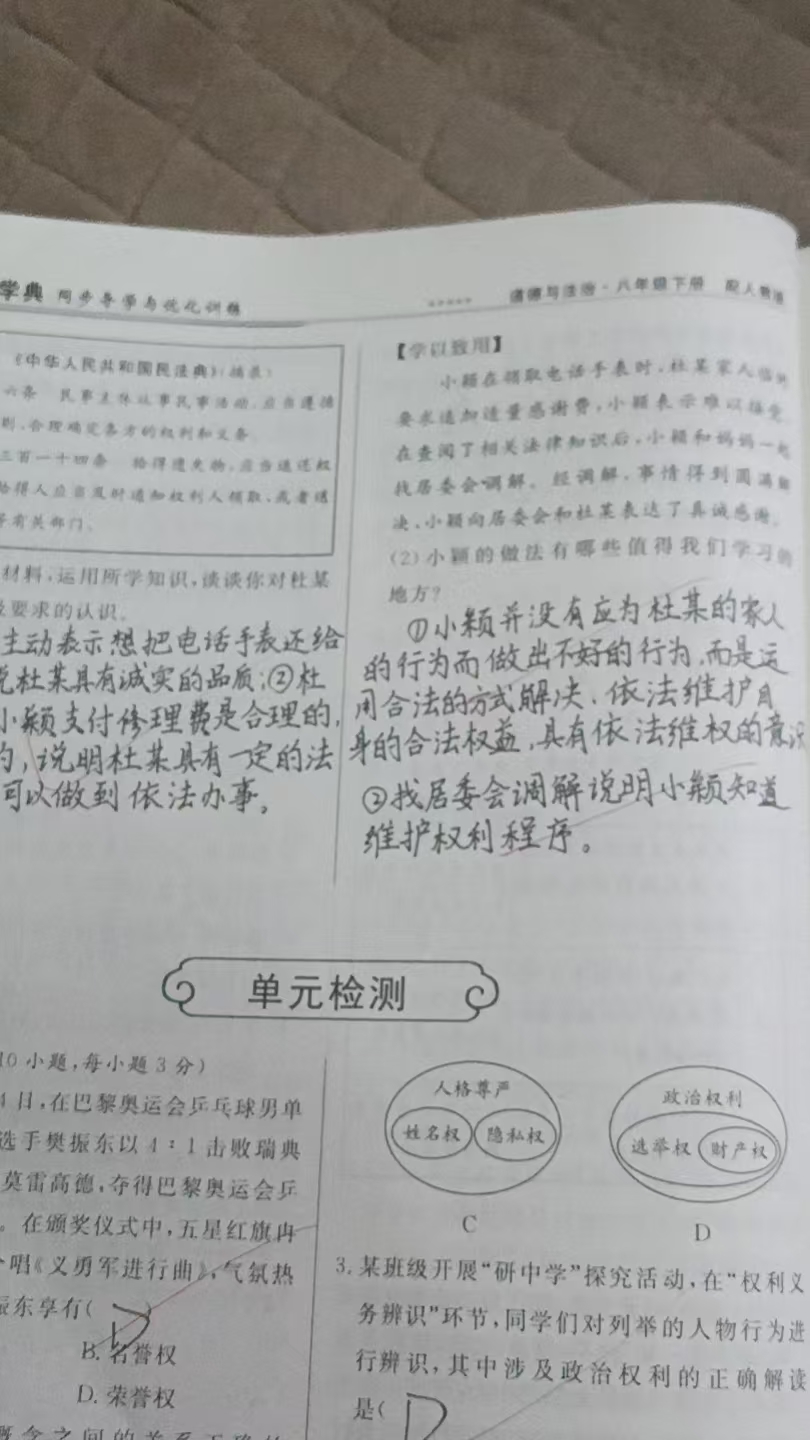 学典 同步导学与优化训练
道德与法治·八年级下册 配人教版
《中华人民共和国民法典》摘录:
六条 民事主体从事民事活动,应当遵循
则,合理确定各方的权利和义务
三百一十四条 拾得遗失物,应当返还权
拾得人应当及时通知权利人领取,或者送
等有关部门。
材料,运用所学知识,谈谈你对杜某
要求的认识。
主动表示想把电话手表还给
杜某具有诚实的品质;②杜
小颖支付修理费是合理的,
的,说明杜某具有一定的法
可以做到依法办事。
【学以致用】
小颖在领取电话手表时,杜某家人临时
要求追加适量感谢费,小颖表示难以接受
在查阅了相关法律知识后,小颖和妈妈一起
找居委会调解。经调解,事情得到圆满解
决,小颖向居委会和杜某表达了真诚感谢。
(2)小颖的做法有哪些值得我们学习的
地方?
①小颖并没有应为杜某的家人
的行为而做出不好的行为,而是运
用合法的方式解决、依法维护自
身的合法权益,具有依法维权的意识
②找居委会调解说明小颖知道
维护权利程序。
单元检测
10小题,每小题3分)
4日,在巴黎奥运会乒乓球男单
选手樊振东以4∶1击败瑞典
莫雷高德,夺得巴黎奥运会乒
。在颁奖仪式中,五星红旗冉
唱《义勇军进行曲》,气氛热
振东享有( D )
B. 名誉权
D. 荣誉权
概念之间的关系正确的
人格尊严
姓名权 隐私权
C
政治权利
选举权 财产权
D
3. 某班级开展“研中学”探究活动,在“权利义
务辨识”环节,同学们对列举的人物行为进
行辨识,其中涉及政治权利的正确解读
是( D